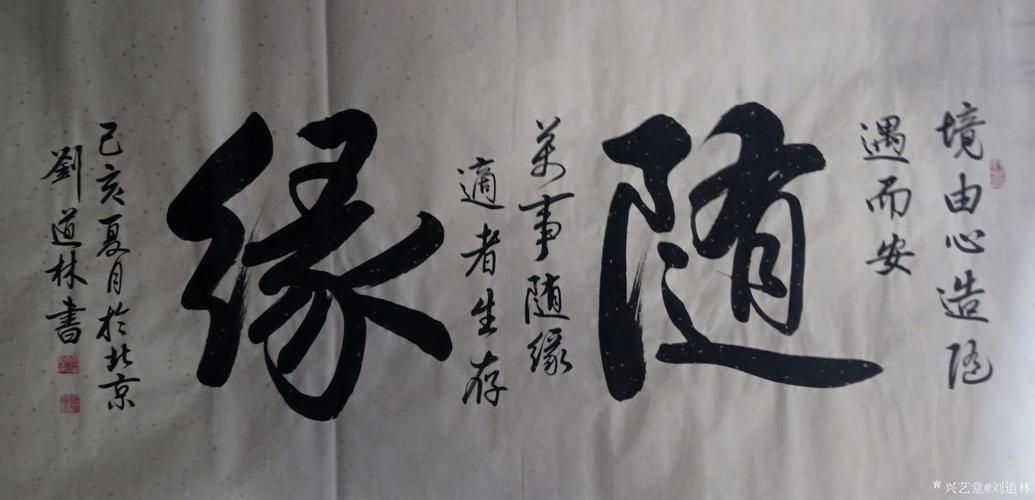 境由心造随
遇而安
随
萬事随缘
適者生存
缘
己亥夏月於北京
劉道林書
兴艺堂@刘道林